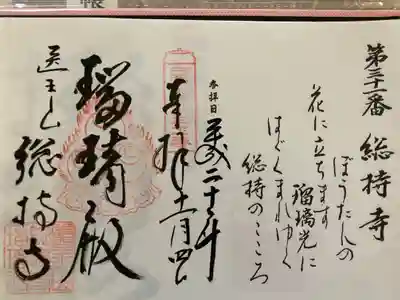 帳
第三十一番 総持寺
ぼうたんの
花に立ちます
瑠璃光に
はぐくまれゆく
総持のこころ
参拝日
平成二十年
奉拝 十一月四日
瑠璃殿
医王山 総持寺